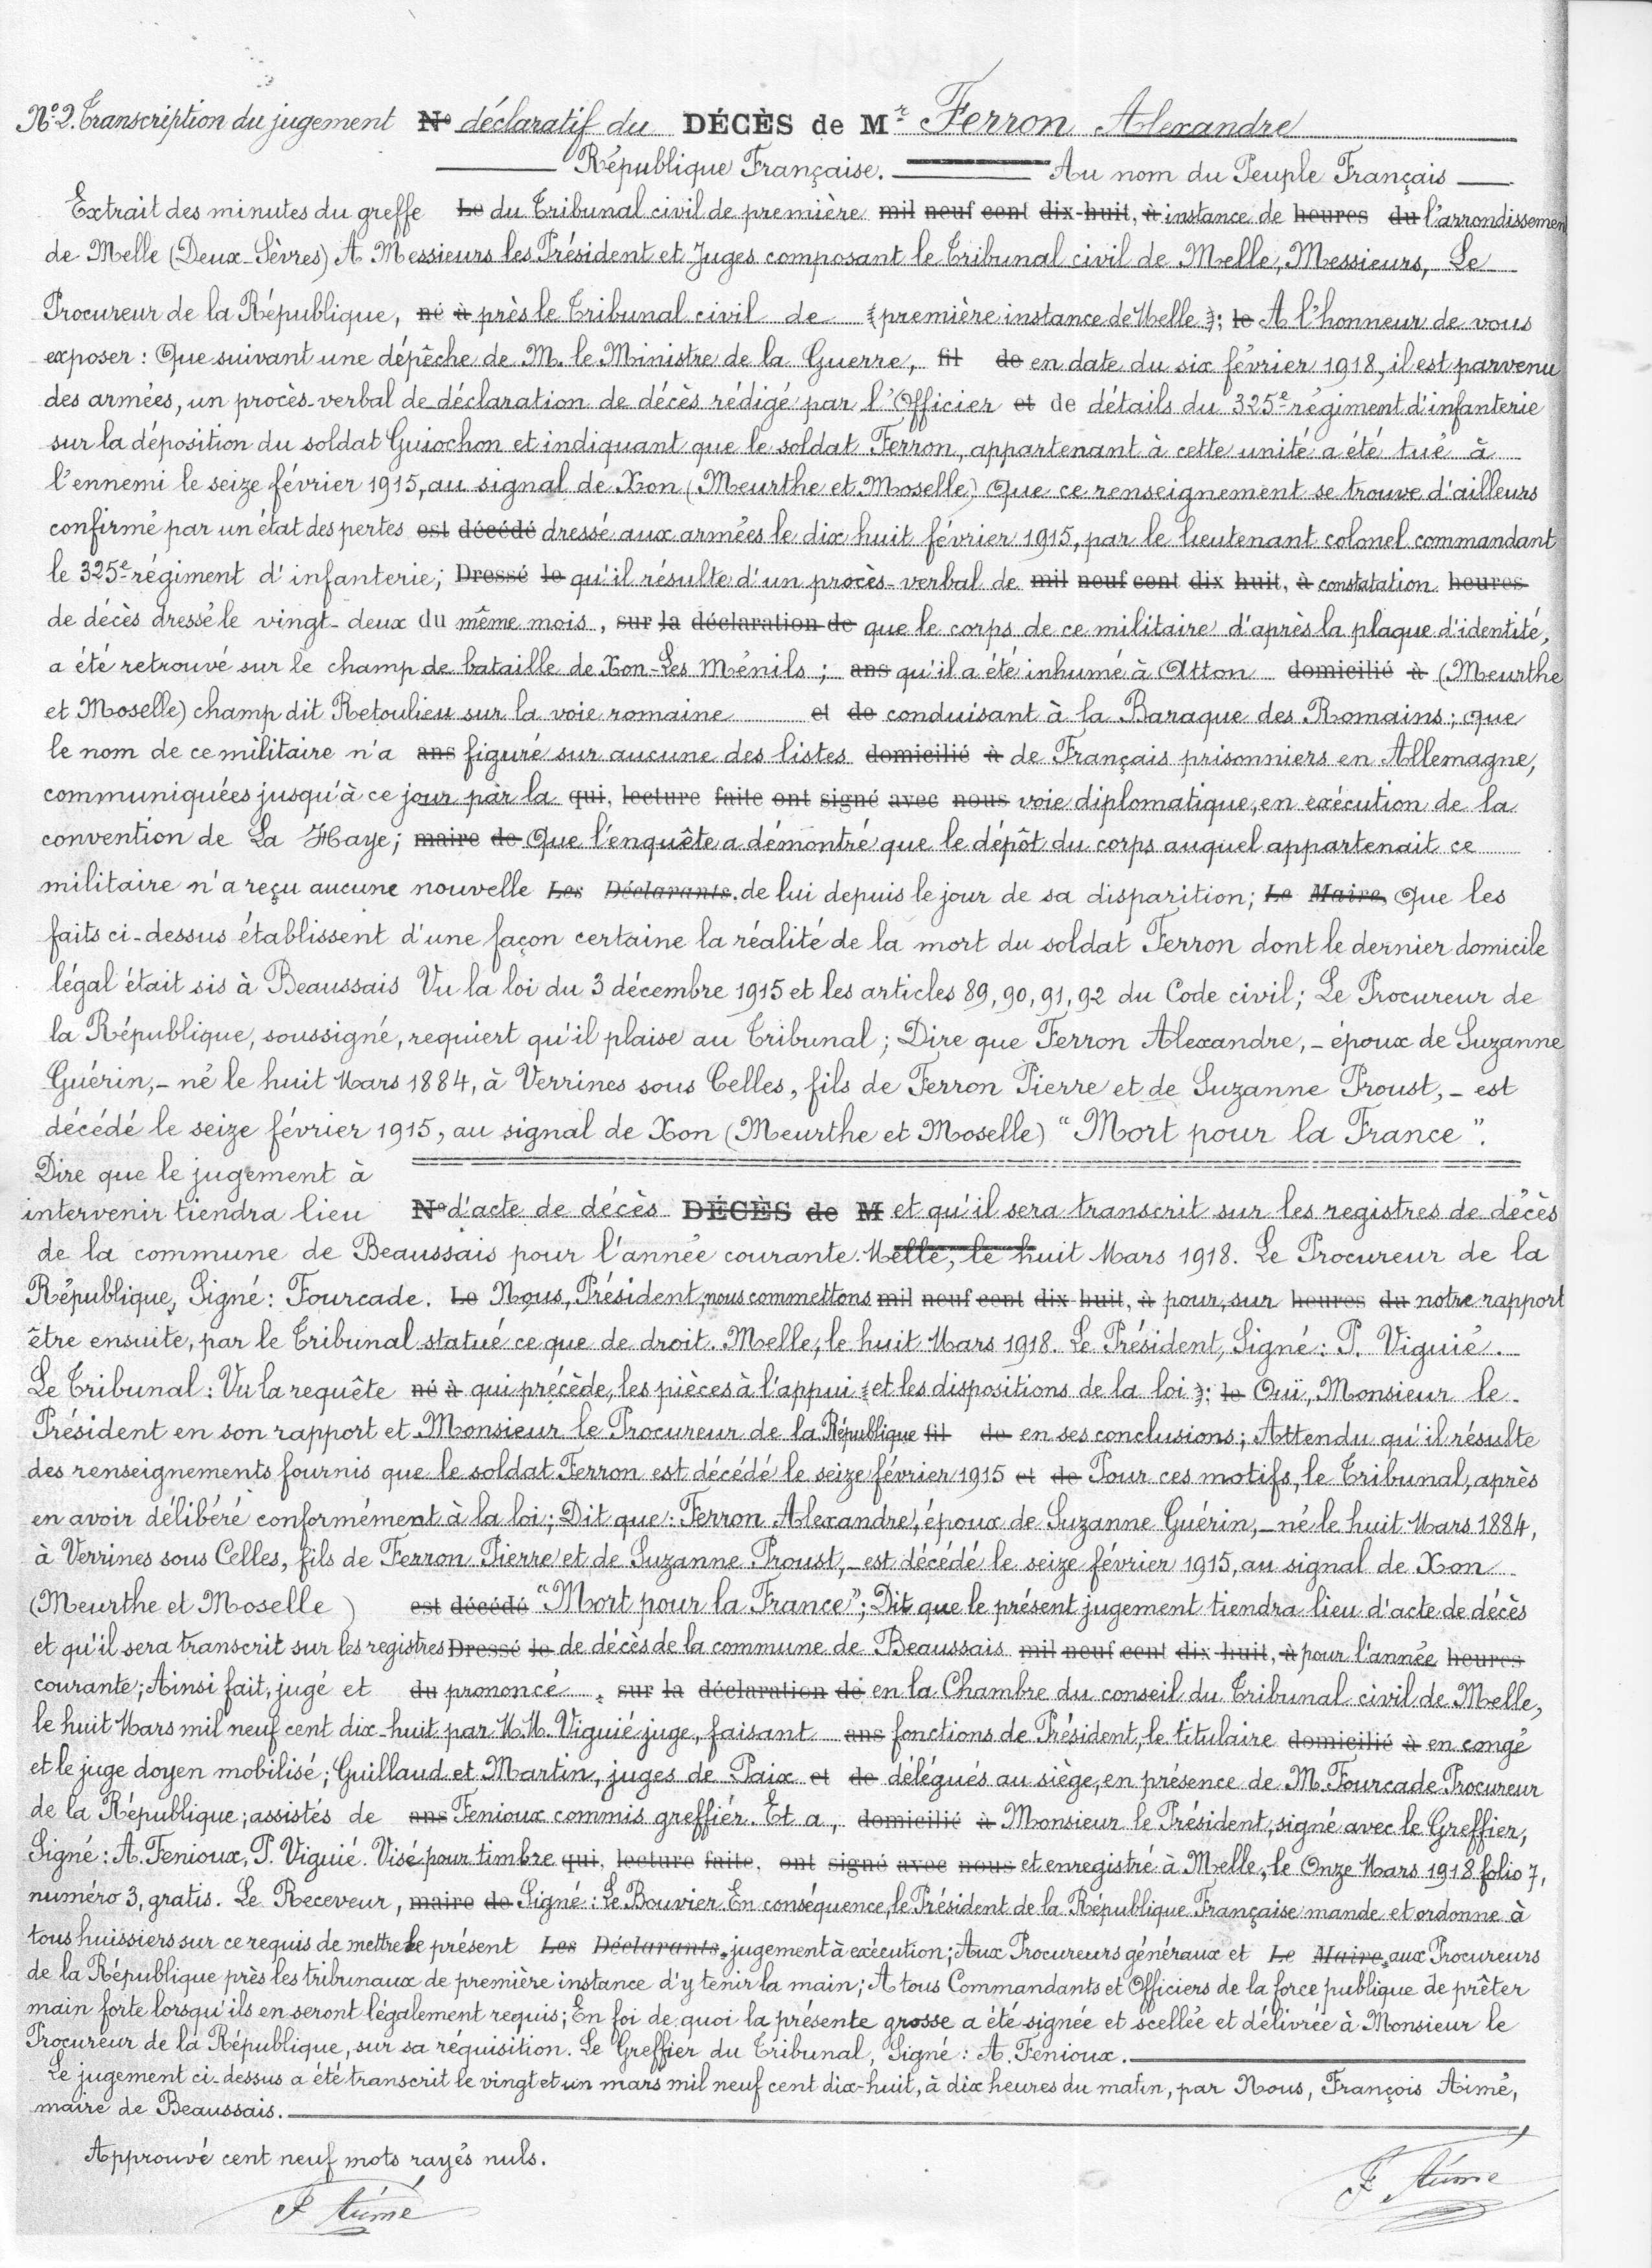 N° 2. Transcription du jugement N° déclaratif du DÉCÈS de Mr Ferron Alexandre
République Française. Au nom du Peuple Français
Extrait des minutes du greffe Le du Tribunal civil de première mil neuf cent dix-huit, à instance de heures du l'arrondissement
de Melle (Deux-Sèvres) A Messieurs les Président et Juges composant le Tribunal civil de Melle, Messieurs, Le
Procureur de la République, né à près le Tribunal civil de (première instance de Melle); le A l'honneur de vous
exposer : Que suivant une dépêche de M. le Ministre de la Guerre, fil de en date du six février 1918, il est parvenu
des armées, un procès-verbal de déclaration de décès rédigé par l'Officier et de détails du 325e régiment d'infanterie
sur la déposition du soldat Guiochon et indiquant que le soldat Ferron, appartenant à cette unité a été tué à
l'ennemi le seize février 1915, au signal de Xon (Meurthe et Moselle) Que ce renseignement se trouve d'ailleurs
confirmé par un état des pertes est décédé dressé aux armées le dix huit février 1915, par le lieutenant colonel commandant
le 325e régiment d'infanterie; Dressé le qu'il résulte d'un procès-verbal de mil neuf cent dix huit, à constatation heures
de décès dressé le vingt-deux du même mois, sur la déclaration de que le corps de ce militaire d'après la plaque d'identité,
a été retrouvé sur le champ de bataille de Xon-Les Ménils; ans qu'il a été inhumé à Atton domicilié à (Meurthe
et Moselle) champ dit Retoulieu sur la voie romaine et de conduisant à la Baraque des Romains; que
le nom de ce militaire n'a ans figuré sur aucune des listes domicilié à de Français prisonniers en Allemagne,
communiquées jusqu'à ce jour par la qui, lecture faite ont signé avec nous voie diplomatique, en exécution de la
convention de La Haye; maire de Que l'enquête a démontré que le dépôt du corps auquel appartenait ce
militaire n'a reçu aucune nouvelle Les Déclarants. de lui depuis le jour de sa disparition; Le Maire, Que les
faits ci-dessus établissent d'une façon certaine la réalité de la mort du soldat Ferron dont le dernier domicile
légal était sis à Beaussais Vu la loi du 3 décembre 1915 et les articles 89, 90, 91, 92 du Code civil; Le Procureur de
la République, soussigné, requiert qu'il plaise au Tribunal; Dire que Ferron Alexandre, - époux de Suzanne
Guérin, - né le huit Mars 1884, à Verrines sous Celles, fils de Ferron Pierre et de Suzanne Proust, - est
décédé le seize février 1915, au signal de Xon (Meurthe et Moselle) "Mort pour la France".
Dire que le jugement à
intervenir tiendra lieu N° d'acte de décès DÉCÈS de M et qu'il sera transcrit sur les registres de décès
de la commune de Beaussais pour l'année courante. Melle, le huit Mars 1918. Le Procureur de la
République, Signé : Fourcade. Le Nous, Président, nous commettons mil neuf cent dix huit, à pour, sur heures du notre rapport
être ensuite, par le Tribunal statué ce que de droit. Melle, le huit Mars 1918. Le Président, Signé : P. Viguié.
Le Tribunal : Vu la requête né à qui précède, les pièces à l'appui (et les dispositions de la loi); le Ouï, Monsieur le
Président en son rapport et Monsieur le Procureur de la République fil de en ses conclusions; Attendu qu'il résulte
des renseignements fournis que le soldat Ferron est décédé le seize février 1915 et de Pour ces motifs, le Tribunal, après
en avoir délibéré conformément à la loi; Dit que : Ferron Alexandre, époux de Suzanne Guérin, - né le huit Mars 1884,
à Verrines sous Celles, fils de Ferron Pierre et de Suzanne Proust, - est décédé le seize février 1915, au signal de Xon
(Meurthe et Moselle) est décédé "Mort pour la France"; Dit que le présent jugement tiendra lieu d'acte de décès
et qu'il sera transcrit sur les registres Dressé le de décès de la commune de Beaussais mil neuf cent dix huit, à pour l'année heures
courante; Ainsi fait, jugé et du prononcé, sur la déclaration de en la Chambre du conseil du Tribunal civil de Melle,
le huit Mars mil neuf cent dix-huit par M.M. Viguié juge, faisant ans fonctions de Président, le titulaire domicilié à en congé
et le juge doyen mobilisé; Guillaud et Martin, juges de Paix et de délégués au siège, en présence de M. Fourcade Procureur
de la République; assistés de ans Fenioux commis greffier. Et a, domicilié à Monsieur le Président, signé avec le Greffier,
Signé : A. Fenioux, P. Viguié. Visé pour timbre qui, lecture faite, ont signé avec nous et enregistré à Melle, le Onze Mars 1918 folio 7,
numéro 3, gratis. Le Receveur, maire de Signé : Le Bouvier. En conséquence, le Président de la République Française mande et ordonne à
tous huissiers sur ce requis de mettre le présent Les Déclarants. jugement à exécution; Aux Procureurs généraux et Le Maire, aux Procureurs
de la République près les tribunaux de première instance d'y tenir la main; A tous Commandants et Officiers de la force publique de prêter
main forte lorsqu'ils en seront légalement requis; En foi de quoi la présente grosse a été signée et scellée et délivrée à Monsieur le
Procureur de la République, sur sa réquisition. Le Greffier du Tribunal, Signé : A. Fenioux.
Le jugement ci-dessus a été transcrit le vingt et un mars mil neuf cent dix-huit, à dix heures du matin, par Nous, François Aimé,
maire de Beaussais.
Approuvé cent neuf mots rayés nuls.
F Aimé
F Aimé